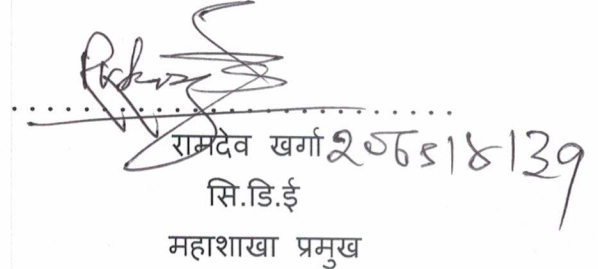 रामदेव खर्गा २०६५।४।३१
सि.डि.ई
महाशाखा प्रमुख